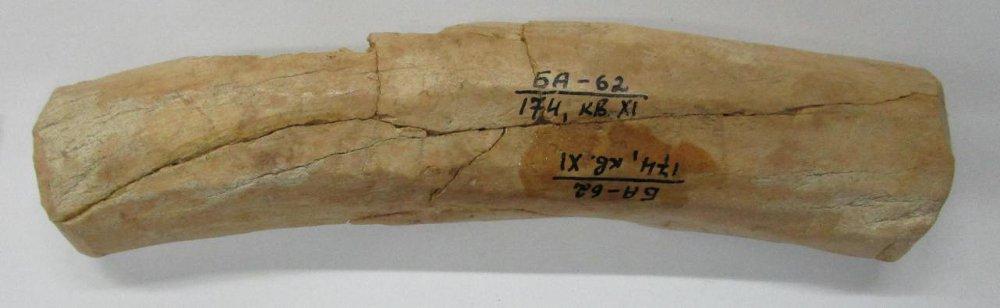 БА-62
174, кв. XI
БА-62
174, кв. XI